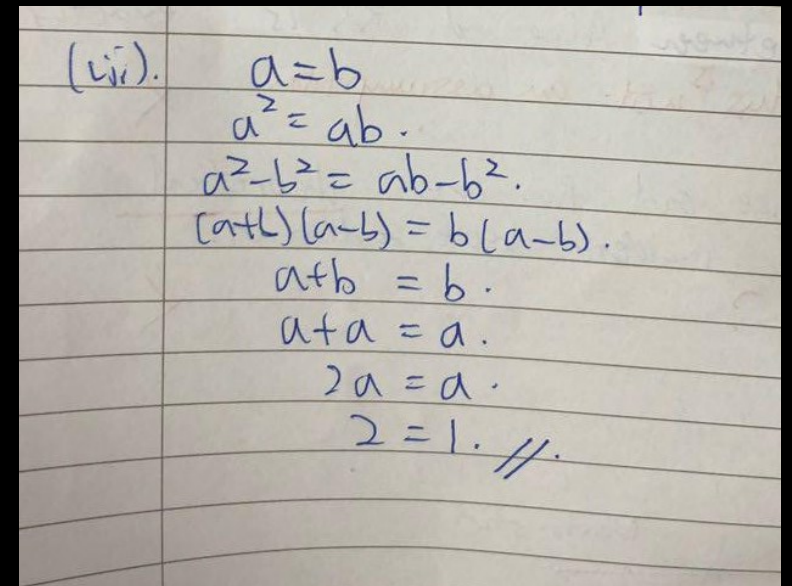 (iii). a=b
a²= ab.
a²-b² = ab-b².
(a+b)(a-b) = b(a-b).
a+b = b.
a+a = a.
2a = a.
2 = 1. //.